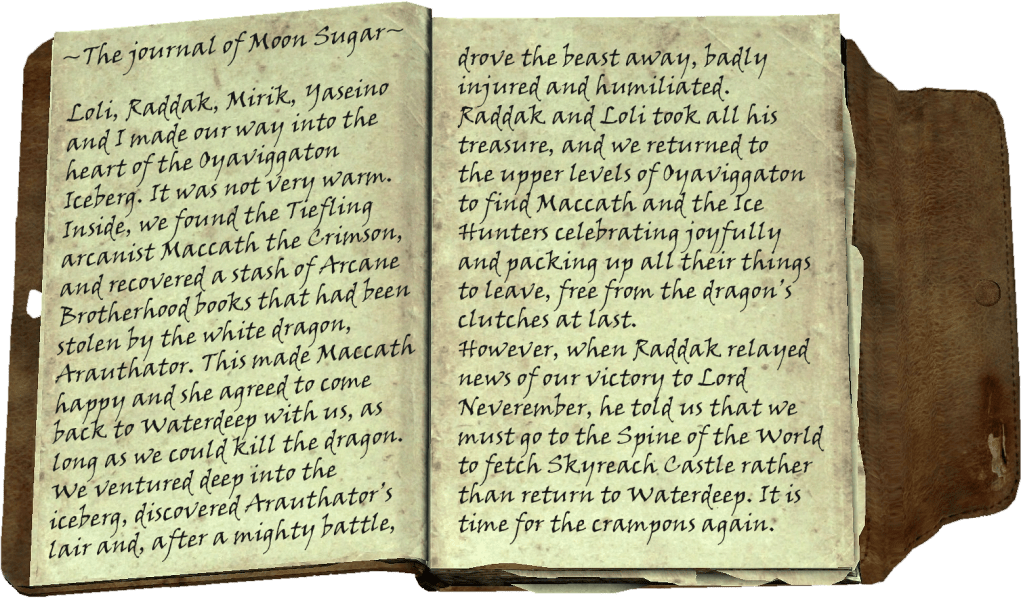 ~The journal of Moon Sugar~
Loli, Raddak, Mirik, Yaseino
and I made our way into the
heart of the Oyaviggaton
Iceberg. It was not very warm.
Inside, we found the Tiefling
arcanist Maccath the Crimson,
and recovered a stash of Arcane
Brotherhood books that had been
stolen by the white dragon,
Arauthator. This made Maccath
happy and she agreed to come
back to Waterdeep with us, as
long as we could kill the dragon.
We ventured deep into the
iceberg, discovered Arauthator's
lair and, after a mighty battle,
drove the beast away, badly
injured and humiliated.
Raddak and Loli took all his
treasure, and we returned to
the upper levels of Oyaviggaton
to find Maccath and the Ice
Hunters celebrating joyfully
and packing up all their things
to leave, free from the dragon's
clutches at last.
However, when Raddak relayed
news of our victory to Lord
Neverember, he told us that we
must go to the Spine of the World
to fetch Skyreach Castle rather
than return to Waterdeep. It is
time for the crampons again.